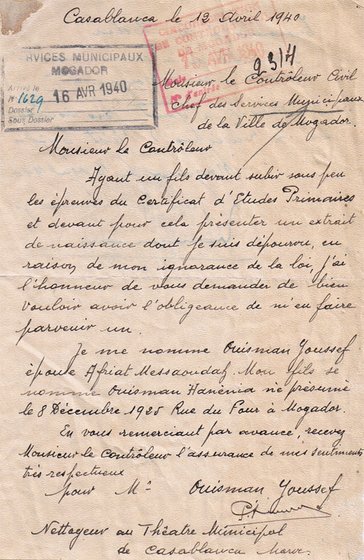 Casablanca le 12 Avril 1940
SERVICES MUNICIPAUX
MOGADOR
Arrivé le
16 AVR 1940
N° 1629
Dossier
Sous Dossier
2314
Monsieur le Contrôleur Civil
Chef des Services Municipaux
de la Ville de Mogador.
Monsieur le Contrôleur
Ayant un fils devant subir sous peu
les épreuves du Certificat d'Etudes Primaires
et devant pour cela présenter un extrait
de naissance dont je suis dépourvu, en
raison de mon ignorance de la loi, j'ai
l'honneur de vous demander de bien
vouloir avoir l'obligeance de m'en faire
parvenir un.
Je me nomme Ouisman Youssef
épouse Afriat Messaoudah. Mon fils se
nomme Ouisman Hanénia né présumé
le 8 Décembre 1925 Rue du Four à Mogador.
En vous remerciant par avance, recevez
Monsieur le Contrôleur l'assurance de mes sentiments
très respectueux
pour Mr Ouisman Youssef
Nettoyeur au Théatre Municipal
de Casablanca Maroc.